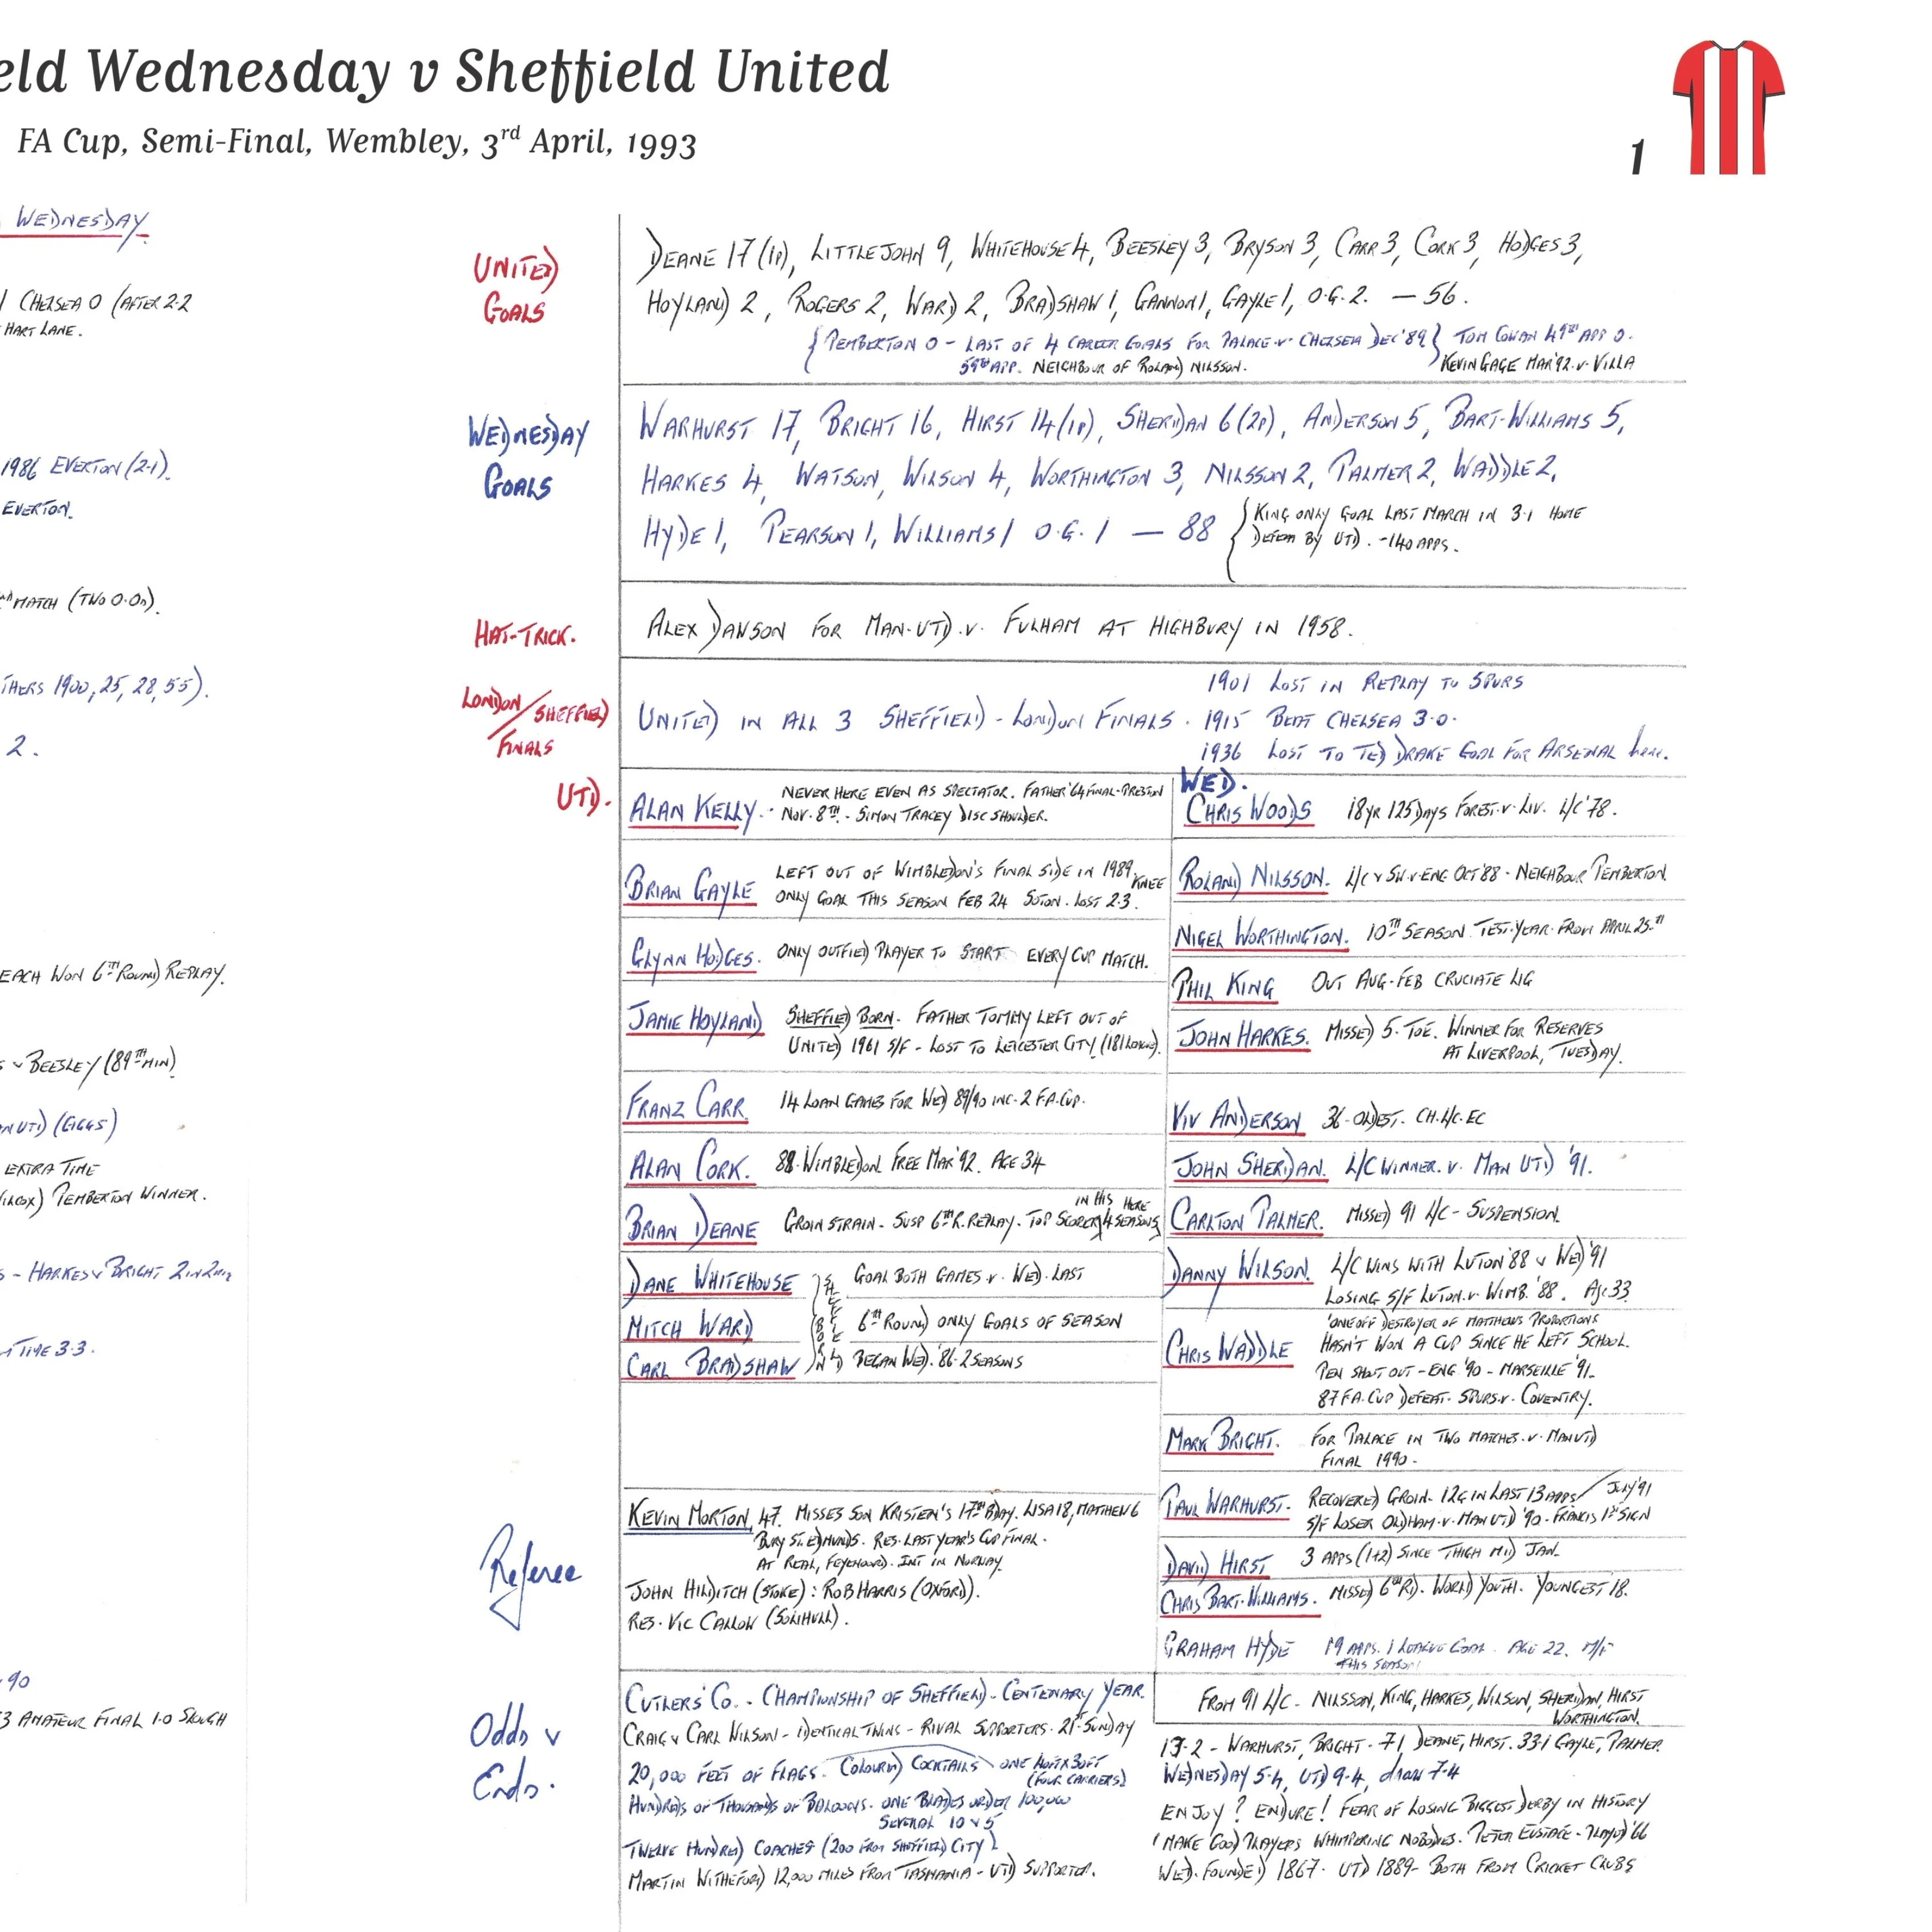 eld Wednesday v Sheffield United
FA Cup, Semi-Final, Wembley, 3rd April, 1993
1
WEDNESDAY
CHELSEA 0 (AFTER 2-2
HART LANE.
1986 EVERTON (2-1).
EVERTON.
MATCH (TWO 0-0s).
THERS 1900, 25, 28, 55).
2.
EACH WON 6TH ROUND REPLAY.
BEESLEY (89TH MIN)
UTD) (GIGGS)
EXTRA TIME
PEMBERTON WINNER.
- HARKES v BRIGHT 2 IN 2
TIME 3-3.
90
3 AMATEUR FINAL 1-0 SLOUGH
UNITED GOALS
DEANE 17 (1P), LITTLEJOHN 9, WHITEHOUSE 4, BEESLEY 3, BRYSON 3, CARR 3, CORK 3, HODGES 3,
HOYLAND 2, ROGERS 2, WARD 2, BRADSHAW 1, GANNON 1, GAYLE 1, O.G. 2. - 56.
{PEMBERTON 0 - LAST OF 4 CAREER GOALS FOR PALACE v CHELSEA DEC '89} TOM COWAN 49TH APP 0.
59TH APP. NEIGHBOUR OF ROLAND NILSSON. KEVIN GAGE MAR '92 v VILLA
WEDNESDAY GOALS
WARHURST 17, BRIGHT 16, HIRST 14 (1P), SHERIDAN 6 (2P), ANDERSON 5, BART-WILLIAMS 5,
HARKES 4, WATSON, WILSON 4, WORTHINGTON 3, NILSSON 2, PALMER 2, WADDLE 2,
HYDE 1, PEARSON 1, WILLIAMS 1 O.G. 1 - 88
{KING ONLY GOAL LAST MARCH IN 3-1 HOME
DEFEAT BY UTD. - 140 APPS.
HAT-TRICK.
ALEX DAWSON FOR MAN-UTD. v. FULHAM AT HIGHBURY IN 1958.
LONDON/SHEFFIELD FINALS
1901 LOST IN REPLAY TO SPURS
UNITED IN ALL 3 SHEFFIELD - LONDON FINALS. 1915 BEAT CHELSEA 3-0.
1936 LOST TO TED DRAKE GOAL FOR ARSENAL here.
UTD.
ALAN KELLY. NEVER HERE EVEN AS SPECTATOR. FATHER '64 FINAL - PRESTON
NOV. 8TH - SIMON TRACEY DISC SHOULDER.
BRIAN GAYLE LEFT OUT OF WIMBLEDON'S FINAL SIDE IN 1989 KNEE
ONLY GOAL THIS SEASON FEB 24 SOTON. LOST 2-3.
GLYNN HODGES. ONLY OUTFIELD PLAYER TO START EVERY CUP MATCH.
JAMIE HOYLAND SHEFFIELD BORN. FATHER TOMMY LEFT OUT OF
UNITED 1961 S/F - LOST TO LEICESTER CITY (181 LEAGUE).
FRANZ CARR 14 LOAN GAMES FOR WED 89/90 INC. 2 F.A. CUP.
ALAN CORK. 88. WIMBLEDON FREE MAR '92. AGE 34
BRIAN DEANE GROIN STRAIN - SUSP 6TH R. REPLAY. TOP SCORER IN HIS 4 SEASONS HERE
DANE WHITEHOUSE GOAL BOTH GAMES v. WED. LAST
MITCH WARD 6TH ROUND ONLY GOALS OF SEASON
CARL BRADSHAW BEGAN WED. '86. 2 SEASONS
SHEFFIELD BORN
WED.
CHRIS WOODS 18YR 125 DAYS FOREST v. LIV. L/C '78.
ROLAND NILSSON. L/C v SW. v ENG OCT '88 - NEIGHBOUR PEMBERTON
NIGEL WORTHINGTON. 10TH SEASON TEST. YEAR. FROM APRIL 25TH
PHIL KING OUT AUG-FEB CRUCIATE LIG
JOHN HARKES. MISSED 5. TOE. WINNER FOR RESERVES
AT LIVERPOOL, TUESDAY.
VIV ANDERSON 36 - OLDEST. CH. L/C. EC
JOHN SHERIDAN. L/C WINNER. v. MAN UTD '91.
CARLTON PALMER. MISSED 91 L/C - SUSPENSION.
DANNY WILSON. L/C WINS WITH LUTON '88 v WED '91
LOSING S/F LUTON v. WIMB. '88. AGE 33
CHRIS WADDLE 'ONE OFF' DESTROYER OF MATTHEWS PROPORTIONS
HASN'T WON A CUP SINCE HE LEFT SCHOOL.
PEN SHOOT OUT - ENG '90 - MARSEILLE '91.
87 F.A. CUP DEFEAT. SPURS. v. COVENTRY.
MARK BRIGHT. FOR PALACE IN TWO MATCHES. v. MAN UTD
FINAL 1990.
PAUL WARHURST. RECOVERED GROIN. 12G IN LAST 13 APPS / JULY '91
S/F LOSER OLDHAM v. MAN UTD '90 - FRANCIS 1ST SIGN
DAVID HIRST 3 APPS (1+2) SINCE THIGH MID JAN.
CHRIS BART-WILLIAMS. MISSED 6TH RD. WORLD YOUTH. YOUNGEST '18.
GRAHAM HYDE 19 APPS. 1 LEAGUE GOAL. AGE 22. M/F
THIS SEASON
Referee
KEVIN MORTON, 47. MISSES SON KRISTIEN'S 17TH BDAY. LISA 18, MATTHEW 6
BURY ST. EDMUNDS. RES. LAST YEAR'S CUP FINAL.
AT REAL, FEYENOORD. INT IN NORWAY.
JOHN HILDITCH (STOKE): ROB HARRIS (OXFORD).
RES. VIC CALLOW (SOLIHULL).
Odds v Ends.
CUTLERS' CO. - CHAMPIONSHIP OF SHEFFIELD - CENTENARY YEAR.
CRAIG v CARL WILSON - IDENTICAL TWINS - RIVAL SUPPORTERS. 21ST SUNDAY
20,000 FEET OF FLAGS. COLOURED COCKTAILS ONE 40FT X 30FT
(FOUR CARRIERS)
HUNDREDS OF THOUSANDS OF BALLOONS. ONE BLADES ORDER 100,000
SEVERAL 10 v 5
TWELVE HUNDRED COACHES (200 FROM SHEFFIELD CITY)
MARTIN WITHEFORD 12,000 MILES FROM TASMANIA - UTD SUPPORTER.
FROM 91 L/C - NILSSON, KING, HARKES, WILSON, SHERIDAN, HIRST
WORTHINGTON.
13-2 - WARHURST, BRIGHT. 7-1 DEANE, HIRST. 33-1 GAYLE, PALMER.
WEDNESDAY 5-4, UTD 9-4, draw 7-4
ENJOY? ENDURE! FEAR OF LOSING BIGGEST DERBY IN HISTORY
'MAKE GOOD PLAYERS WHIMPERING NOBODIES. PETER EUSTACE - PLAYED '66
WED. FOUNDED 1867. UTD 1889 - BOTH FROM CRICKET CLUBS